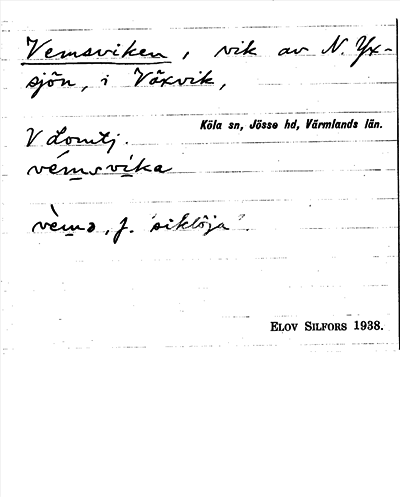 Vemsviken, vik av N. Yx-
sjön, i Växvik,
Köla sn, Jösse hd, Värmlands län.
vémsvíka
vèmə, f. "siklöja".
ELOV SILFORS 1938.